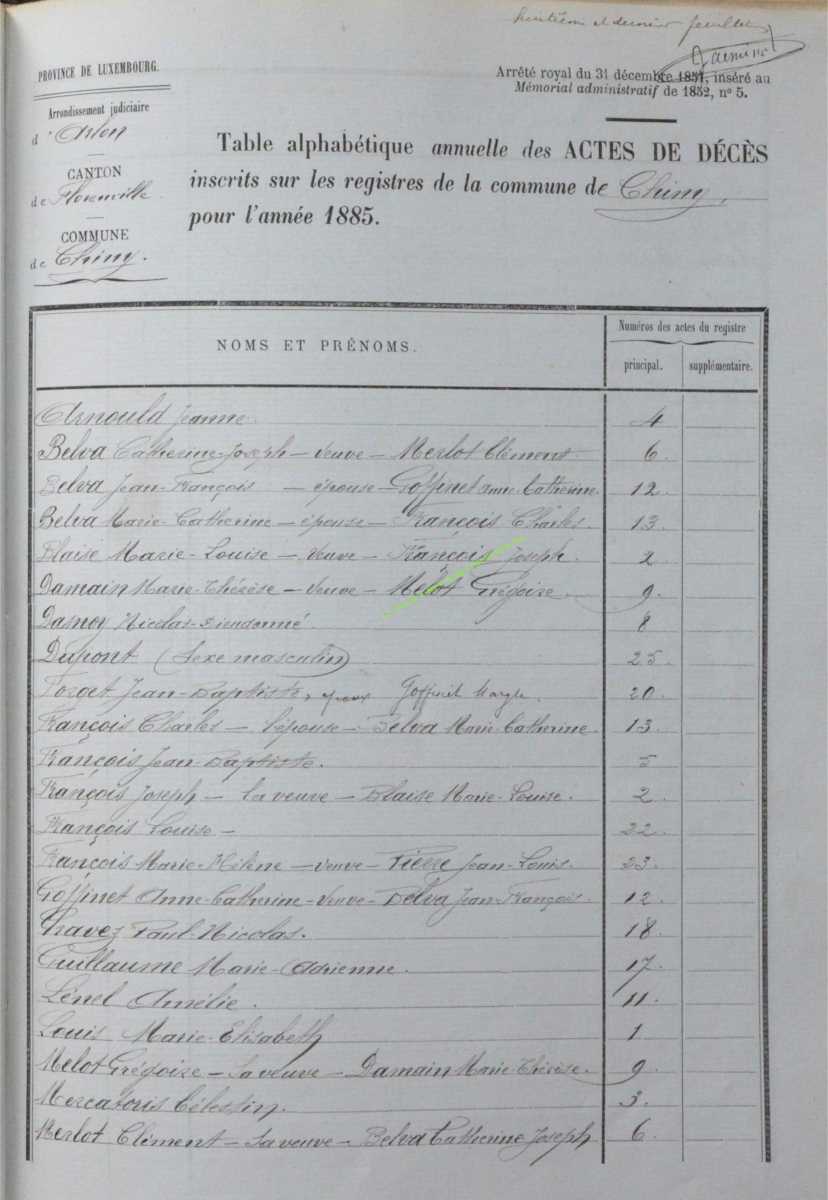 huitième et dernier feuillet
PROVINCE DE LUXEMBOURG.
Arrondissement judiciaire
d'Arlon
CANTON
de Florenville
COMMUNE
de Chiny.
Arrêté royal du 31 décembre 1851, inséré au
Mémorial administratif de 1852, no 5.
Table alphabétique annuelle des ACTES DE DÉCÈS
inscrits sur les registres de la commune de Chiny,
pour l'année 1885.
NOMS ET PRÉNOMS.
Numéros des actes du registre
principal.
supplémentaire.
Arnould Jeanne. 4
Belva Catherine-Joseph - veuve - Merlot Clément. 6.
Belva Jean-François - épouse - Goffinet Anne-Catherine. 12.
Belva Marie-Catherine - épouse - François Charles. 13.
Blaise Marie-Louise - Veuve - François Joseph. 2.
Damain Marie-Thérèse - Veuve - Melot Grégoire. 9.
Damoy Nicolas-Dieudonné. 8
Dupont (Sexe masculin) 25.
Forget Jean-Baptiste, époux Goffinet 20.
François Charles - l'épouse - Belva Marie-Catherine. 13.
François Jean-Baptiste. 5
François Joseph - la veuve - Blaise Marie-Louise. 2.
François Louise - 22.
François Marie-Hélène - veuve - Pierre Jean-Louis. 23.
Goffinet Anne-Catherine - Veuve - Belva Jean-François. 12.
Gravez Paul-Nicolas. 18
Guillaume Marie-Adrienne. 17.
Lénel Amélie. 11.
Louis Marie-Elisabeth 1
Melot Grégoire - Sa veuve - Damain Marie-Thérèse. 9.
Mercatoris Célestin. 3.
Merlot Clément - Sa veuve - Belva Catherine Joseph 6.